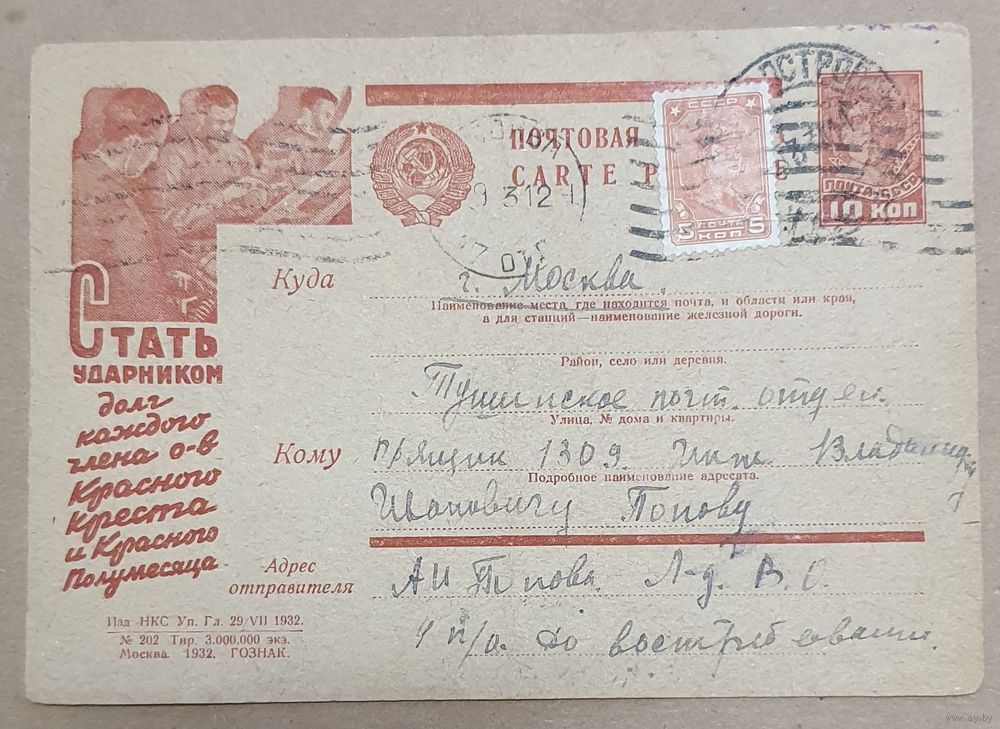 СТАТЬ
УДАРНИКОМ
долг
каждого
члена о-в
Красного
креста
и Красного
Полумесяца
Изд НКС Уп. Гл. 29/VII 1932.
№ 202 Тир. 3.000.000 экз.
Москва 1932. ГОЗНАК.
ПОЧТОВАЯ
CARTE P
СССР
ПОЧТА
5 КОП 5
ПОЧТА-СССР
10 КОП
ОСТРОВ
3 12
Куда
г. Москва.
Наименование места, где находится почта, и области или края,
а для станций—наименование железной дороги.
Район, село или деревня.
Тушинское почт. отдел.
Улица, № дома и квартиры.
Кому
п/ящик 1309. Инж. Владимиру
Подробное наименование адресата.
Ивановичу Попову
Адрес
отправителя
А И Попова. Л-д. В. О.
4 п/о. До востребования.
www.ay.by